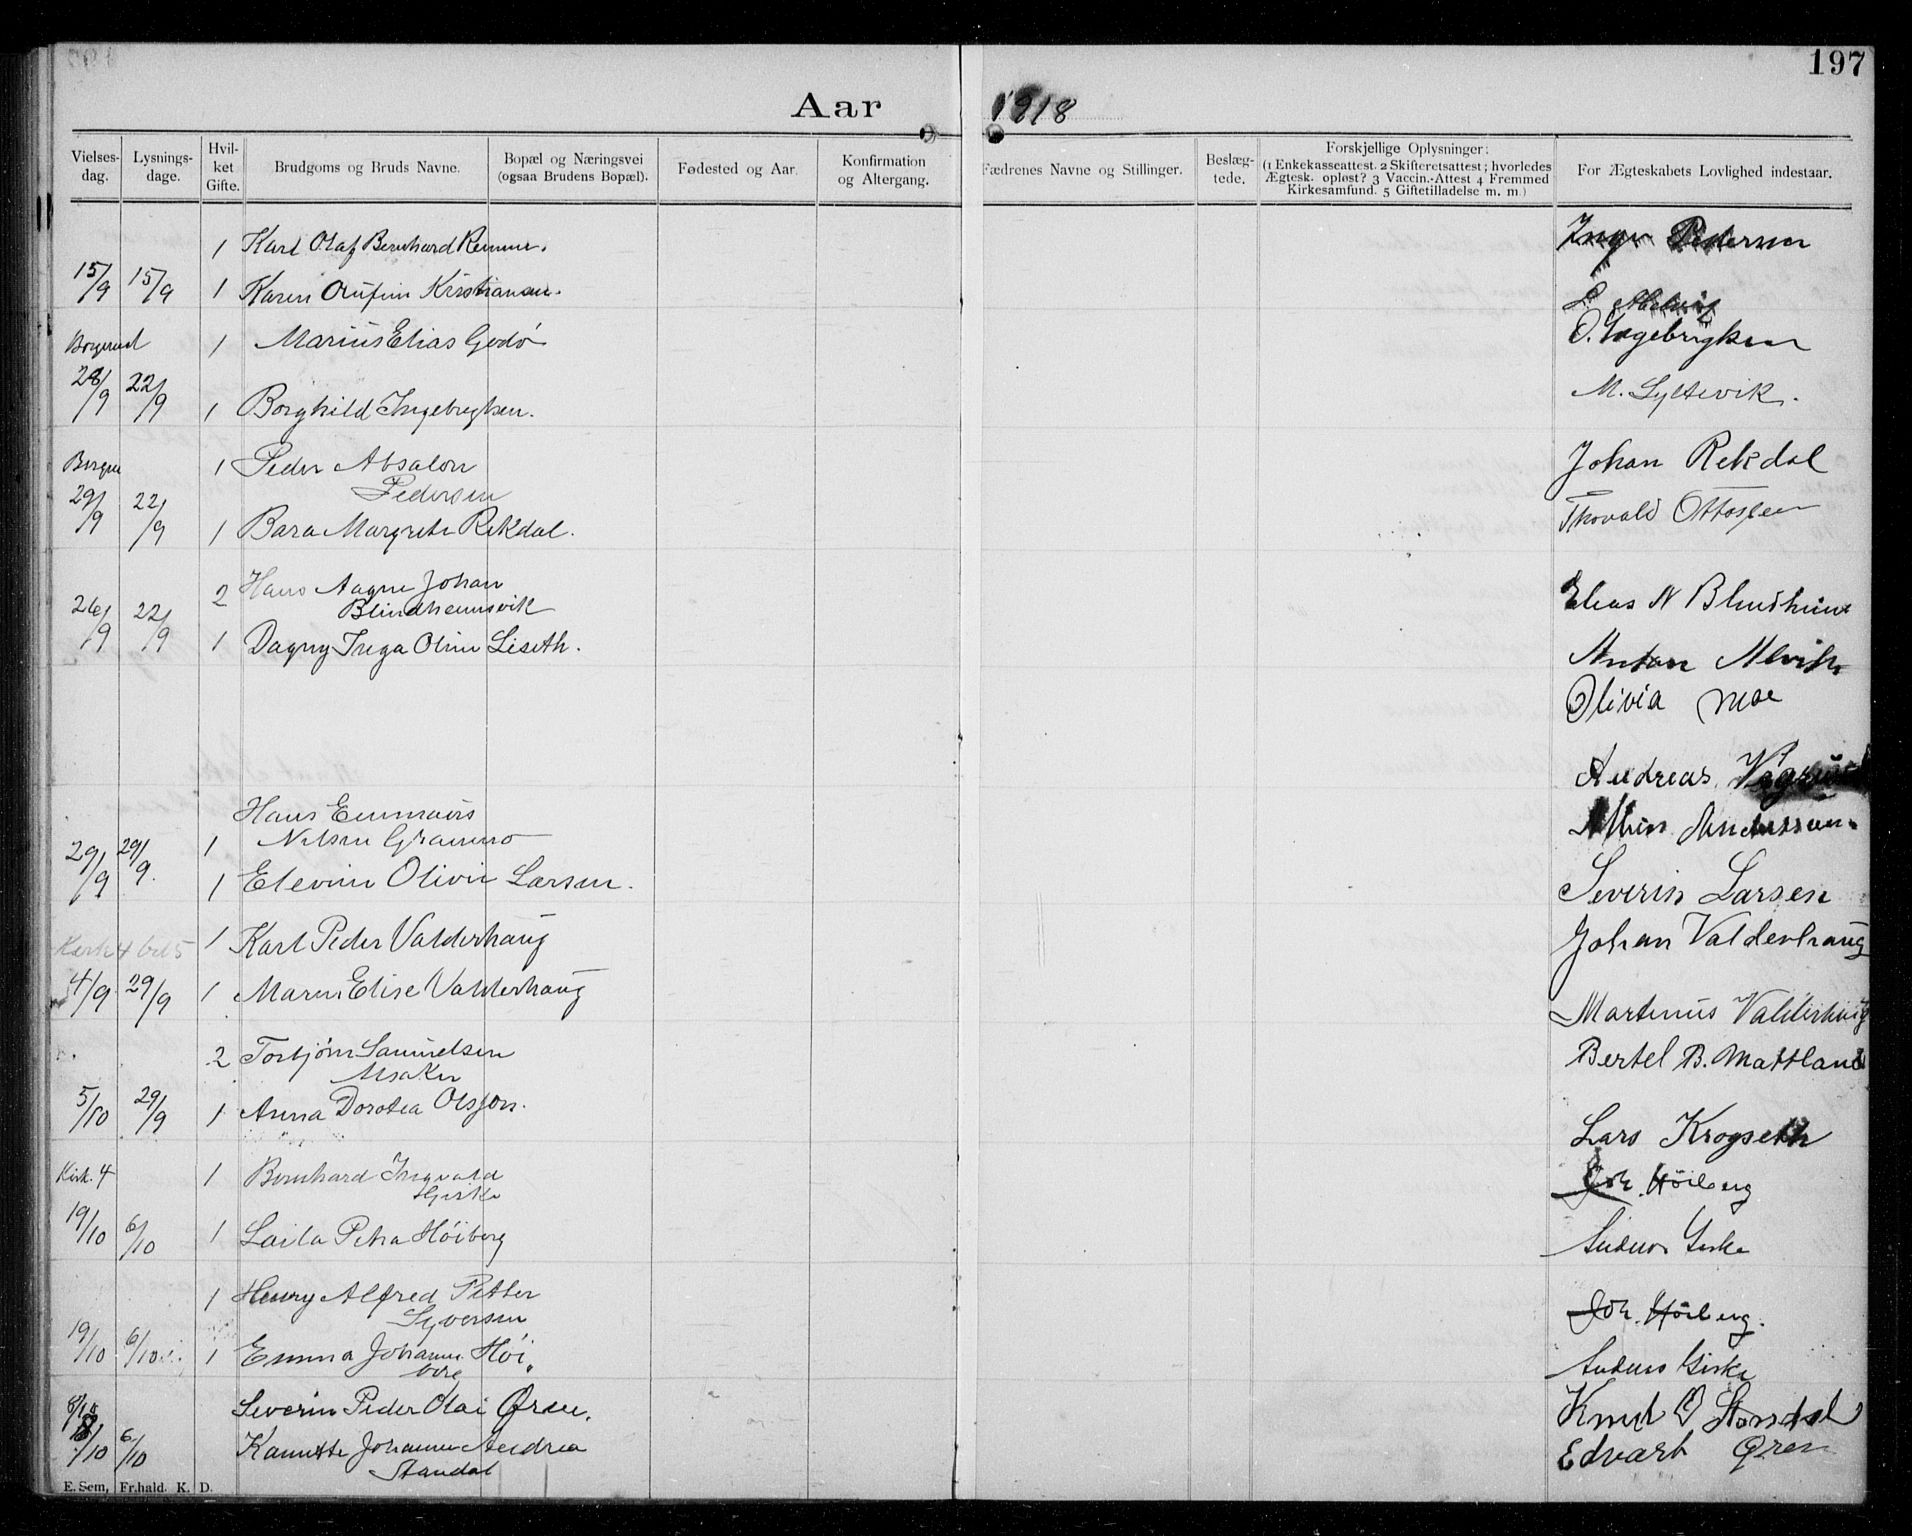 197
Aar 1918
Vielses-dag. Lysnings-dage. Hvil-ket Gifte. Brudgoms og Bruds Navne. Bopæl og Næringsvei (ogsaa Brudens Bopæl). Fødested og Aar. Konfirmation og Altergang. Fædrenes Navne og Stillinger. Beslæg-tede. Forskjellige Oplysninger: (1 Enkekasseattest. 2 Skifteretsattest; hvorledes Ægtesk. opløst? 3 Vaccin.-Attest 4 Fremmed Kirkesamfund. 5 Giftetilladelse m. m.) For Ægteskabets Lovlighed indestaar.
1 Karl Olaf Bernhard Pedersen
15/9 15/9 1 Karen Kristiansen.
1 Marius Elias Godø O. Ingebrigtsen
28/9 22/9 1 Borghild Ingebrigtsen. M. Syltevik.
Borgen 1 Peder Absalon Johan Rekdal
Pedersen
29/9 22/9 1 Bara Margrete Rekdal. Thovald Ottosen
2 Hans Aagne Johan
Blindheimsvik Elias N Blindheim
26/9 22/9 1 Dagny Inga Oline Liseth.
Anton Alvik
Olivia Moe
Andreas
Hans Emmaus
1 Nilsen Gramno
29/9 29/9. 1 Elevine Olivie Larsen. Severin Larsen
1 Karl Peder Valderhaug Johan Valderhaug
4/9 29/9 1 Maren Elise Valderhaug Martinus Valderhaug
2 Torbjørn Samuelsen Bertel B. Mattland
Aksaker
5/10 29/9 1 Anna Dorotea Olsson. Lars Krogseth
Kirk. 4 1 Bernhard Ingvald Joh. Höiberg
Giske
19/10 6/10 1 Laila Petra Höiberg Anders Giske
1 Henry Alfred Petter Joh. Höiberg.
Syversen
19/10 6/10 1 Emma Johanne Höi-
berg Anders Giske
8/10 Severin Peder Olai Øren. Knut O Standal
/10 6/10 Kanutte Johanne Andrea Edvart Øren
Standal
E. Sem, Fr.hald. K. D.